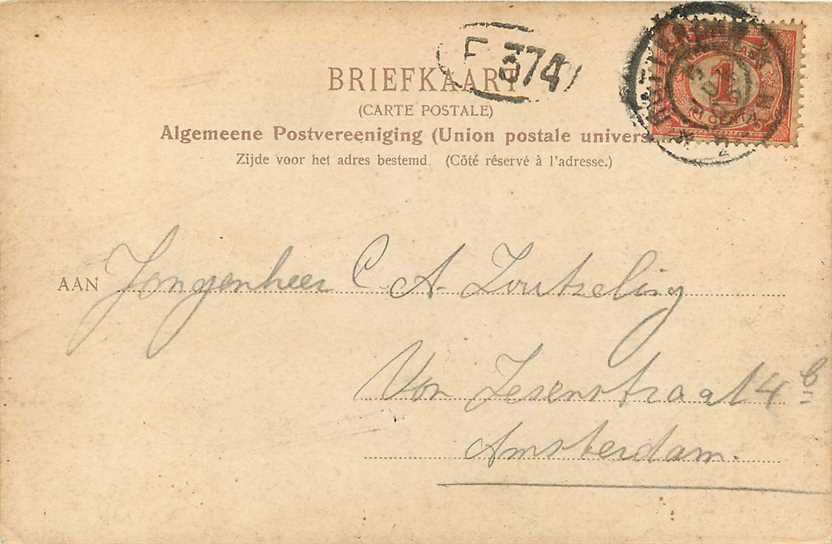 F 374
BRIEFKAART
(CARTE POSTALE)
Algemeene Postvereeniging (Union postale univers
Zijde voor het adres bestemd. (Côté réservé à l'adresse.)
1
AAN Jongenheer C. A. Zoutseling
Von Zesenstraat 4 b
Amsterdam.